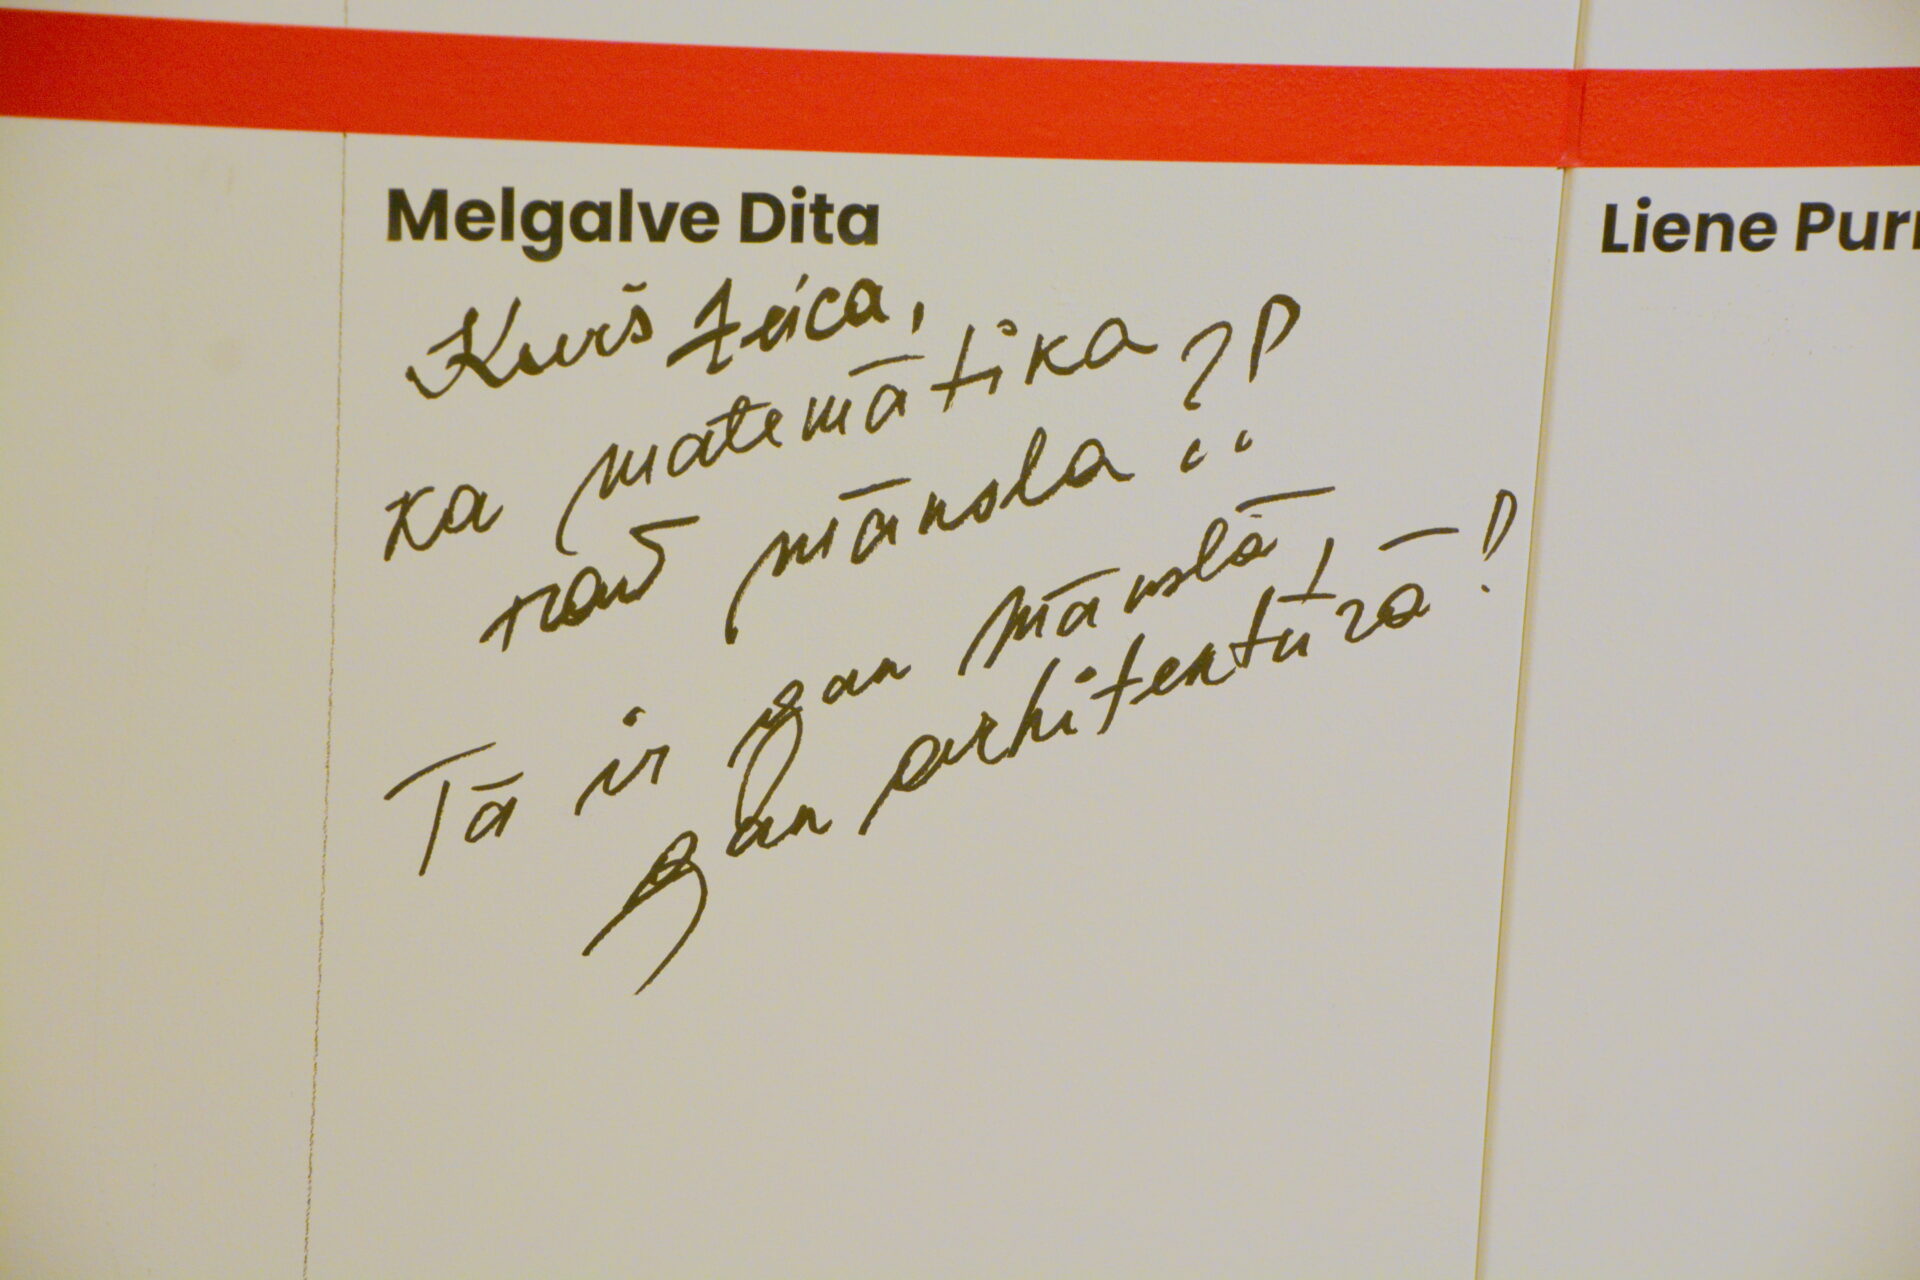 Melgalve Dita
Liene Pur
Kurš teica,
ka matemātika
nav māksla ?!
Tā ir gan mākslā,
gan arhitektūrā!